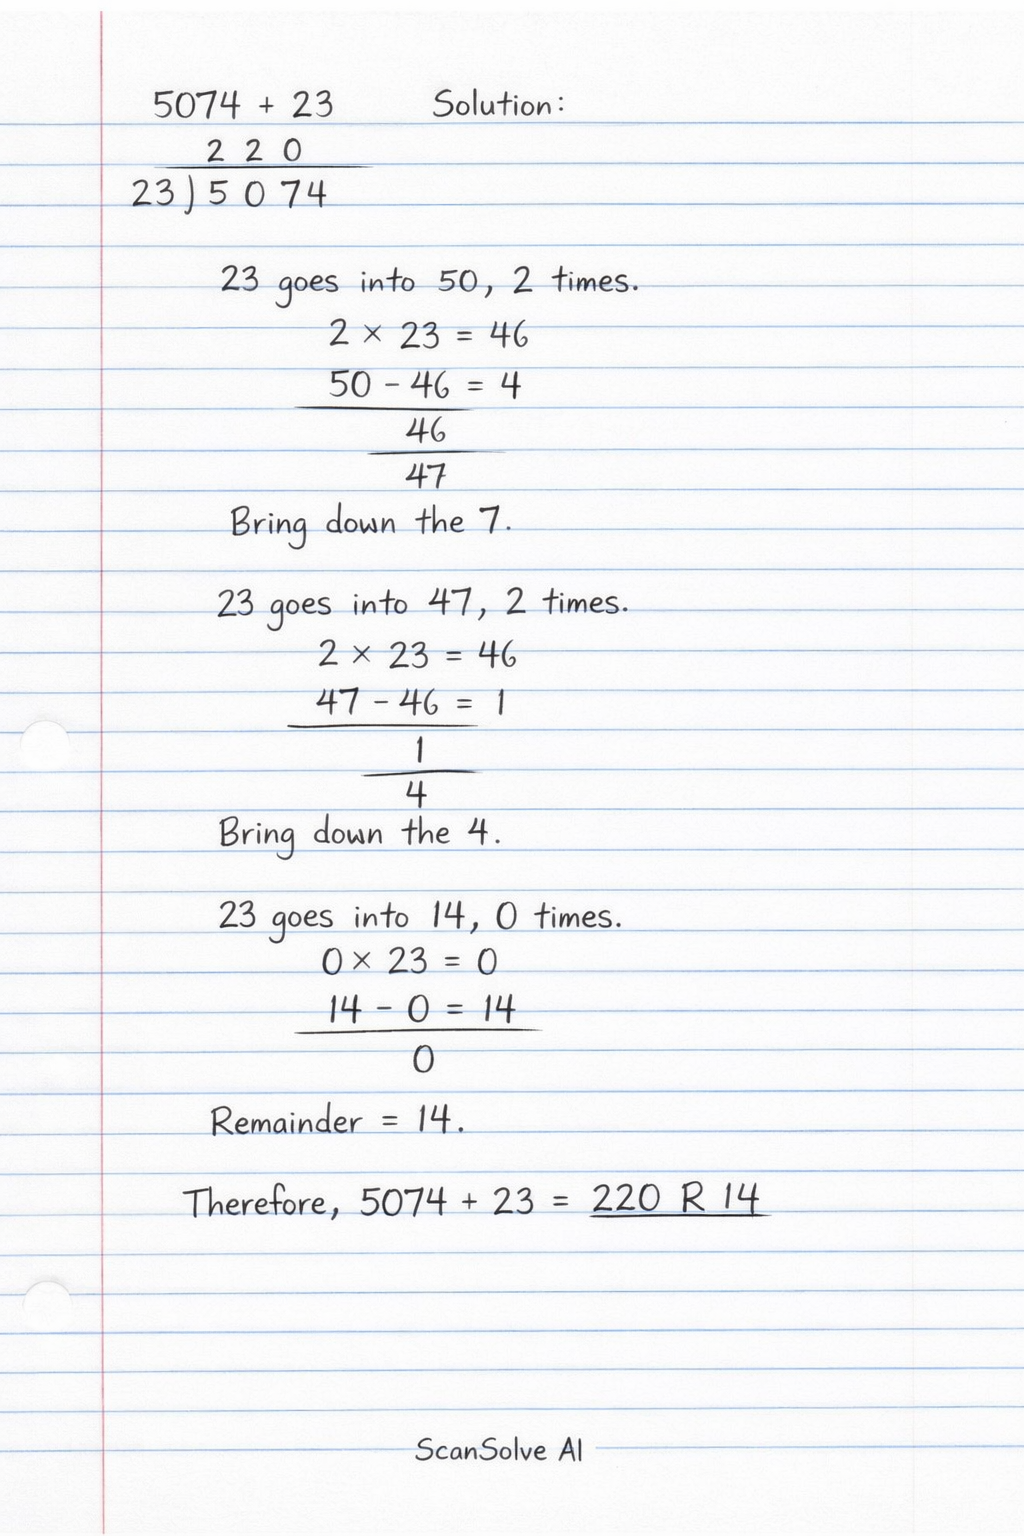 5074 + 23 Solution:
2 2 0
23 ) 5 0 7 4
23 goes into 50, 2 times.
2 × 23 = 46
50 - 46 = 4
46
47
Bring down the 7.
23 goes into 47, 2 times.
2 × 23 = 46
47 - 46 = 1
1
4
Bring down the 4.
23 goes into 14, 0 times.
0 × 23 = 0
14 - 0 = 14
0
Remainder = 14.
Therefore, 5074 + 23 = 220 R 14
ScanSolve AI